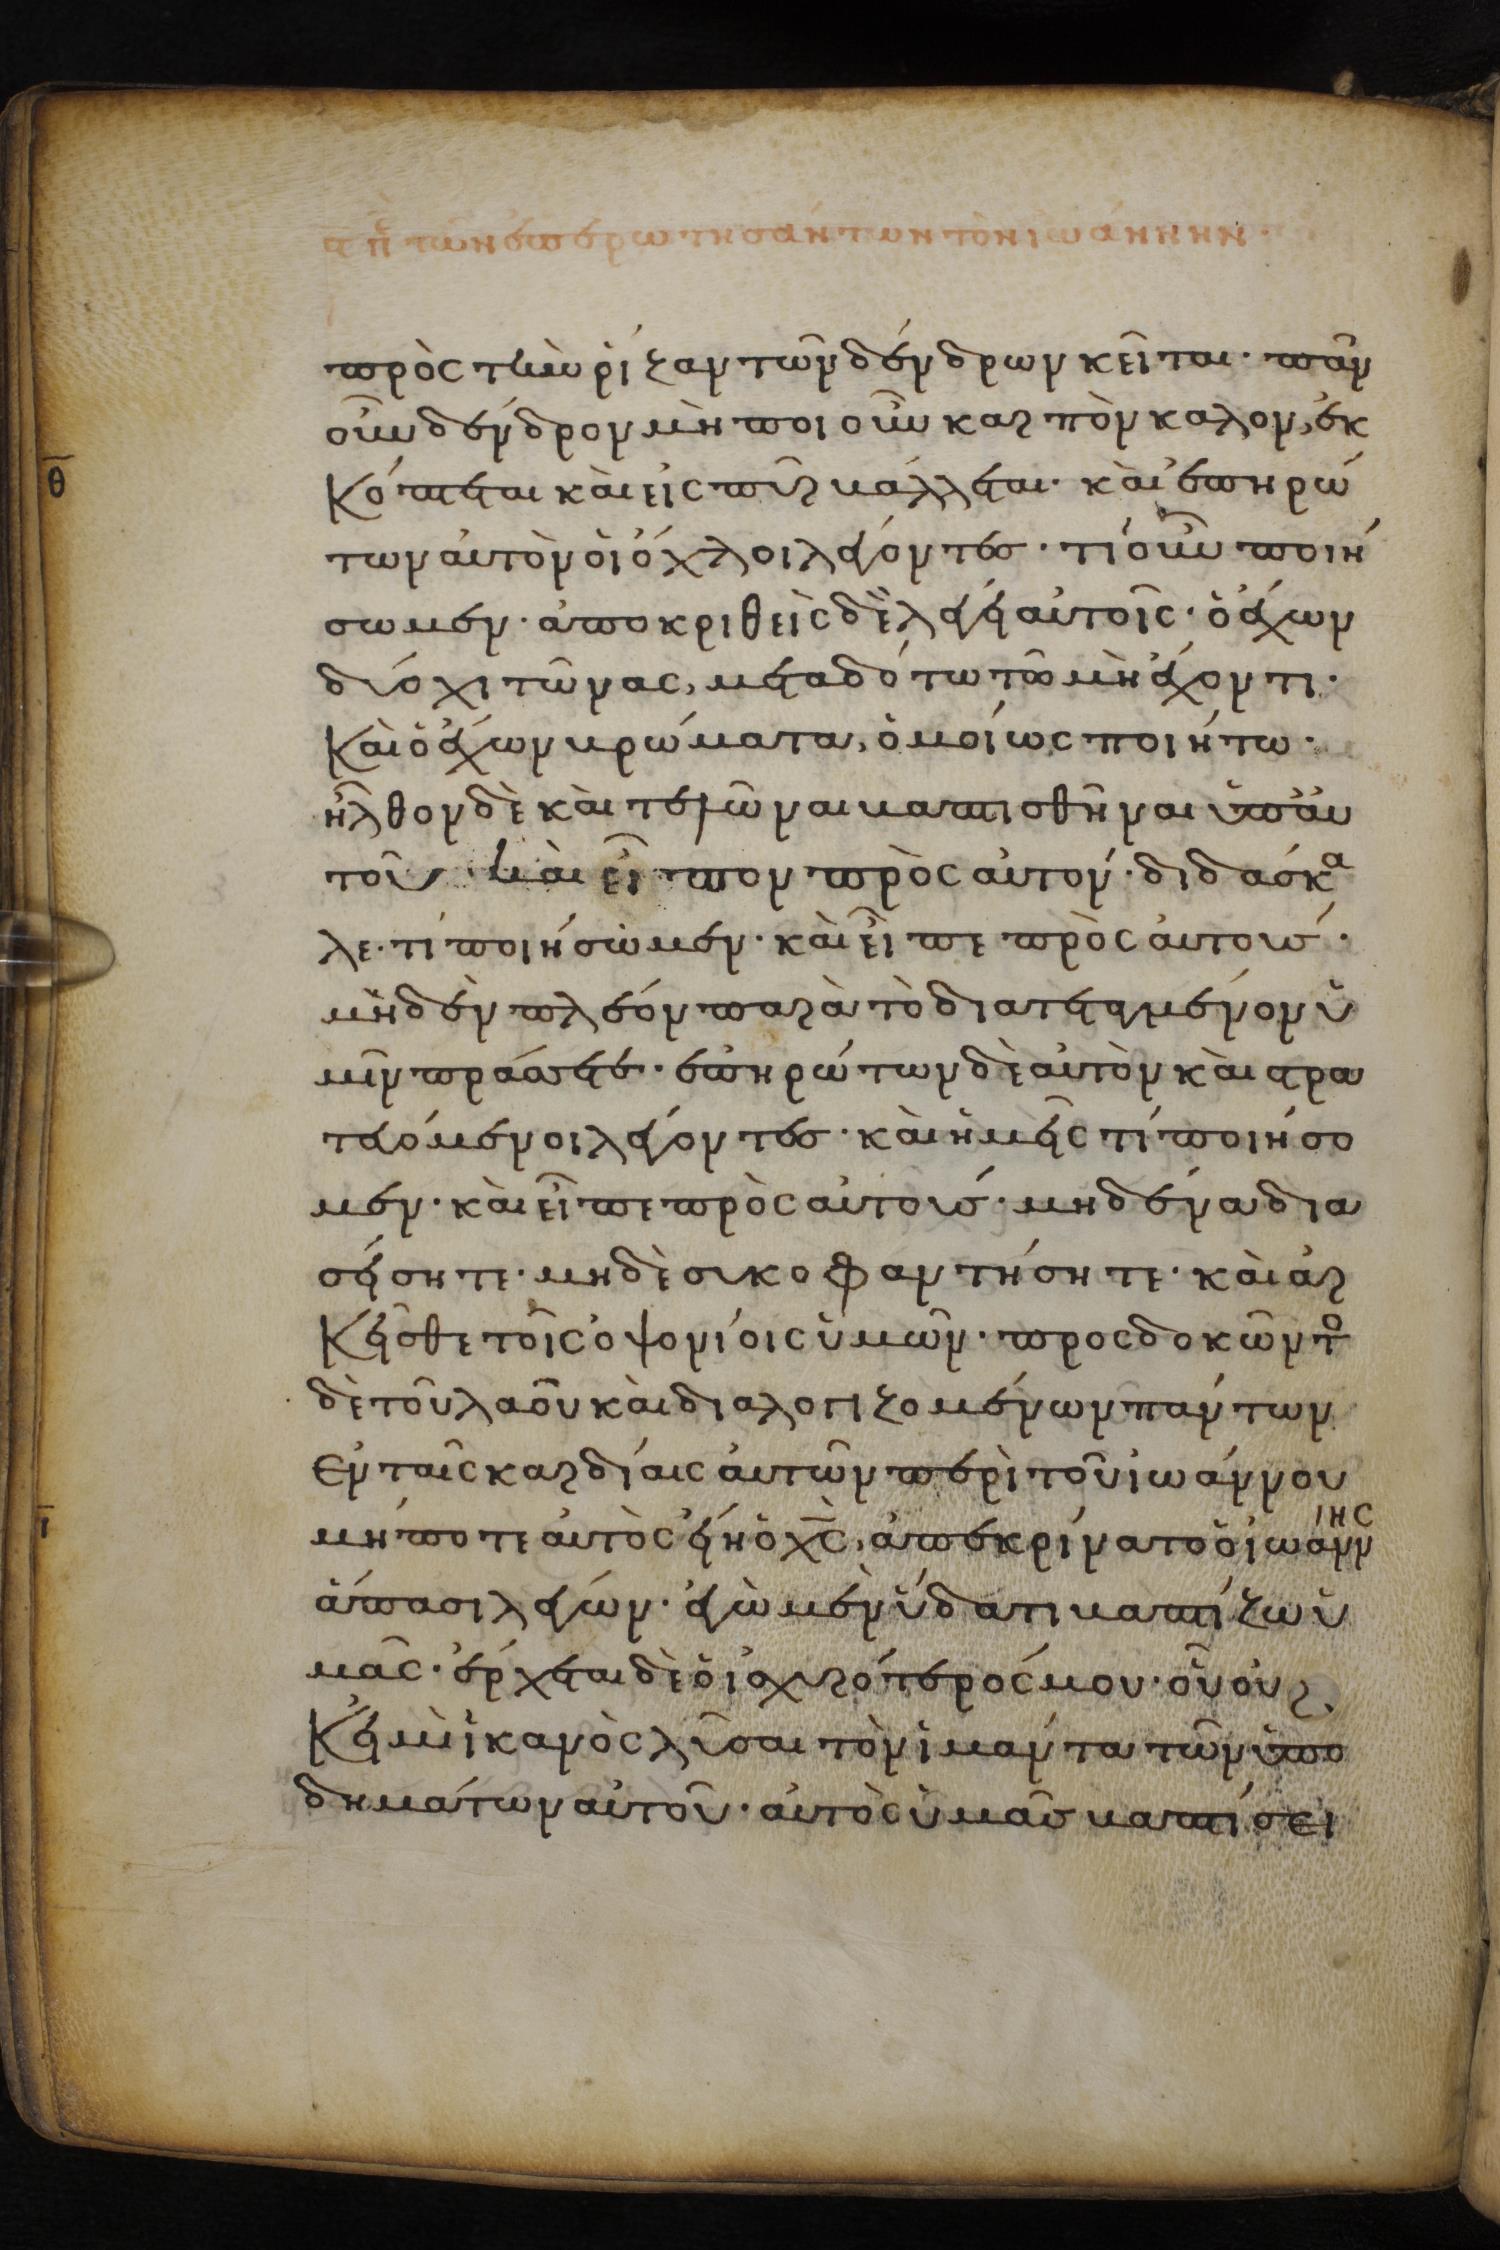 π̅ῆ τῶν ἐπερωτησάντων τὸν ἰωάννην.
πρὸς τὴν ῥίζαν τῶν δένδρων κεῖται· πᾶν
θ
οὖν δένδρον μὴ ποιοῦν καρπὸν καλον, ἐκ
κόπτεται καὶ εἰς πῦρ βάλλεται· καὶ ἐπηρώ
των αὐτὸν οἱ ὄχλοι λέγοντες· τί οὖν ποιή
σωμεν· ἀποκριθεὶς δὲ λέγει αὐτοῖς· ὁ ἔχων
δύο χιτῶνας, μεταδότω τῶ μὴ ἔχοντι·
καὶ ὁ ἔχων βρώματα, ὁμοίως ποιήτω·
ἦλθον δὲ καὶ τελῶναι βαπτισθῆναι ὑπ' αὐ
τοῦ· καὶ εἶπον πρὸς αὐτον· διδάσκα
λε· τί ποιήσωμεν· καὶ εἶπε πρὸς αὐτούς·
μηδὲν πλέον παρὰ τὸ διατεταγμένον ὑ
μῖν πράσσετε· ἐπηρώτων δὲ αὐτὸν καὶ στρα
τευόμενοι λέγοντες· καὶ ἡμεῖς τί ποιήσο
μεν· καὶ εἶπε πρὸς αὐτούς· μηδένα δια
σείσητε· μηδὲ συκοφαντήσητε· καὶ ἀρ
κεῖσθε τοῖς ὀψονίοις ὑμῶν· προσδοκῶντο
δὲ τοῦ λαοῦ καὶ διαλογιζομένων παντων
ἐν ταῖς καρδίαις αὐτῶν περὶ τοῦ ἰωάννου
ι
μήποτε αὐτὸς εἴη ὁ χ̅ς̅, ἀπεκρίνατο ὁ ἰωάννης
ἅπασι λέγων· ἐγὼ μὲν ὕδατι βαπτίζω ὑ
μᾶς· ἔρχεται δὲ ὁ ἰσχυρότερός μου· οὗ οὐκ
εἰμὶ ἱκανὸς λῦσαι τὸν ἱμάντα τῶν ὑπο
δημάτων αὐτοῦ· αὐτὸς ὑμᾶς βαπτίσει